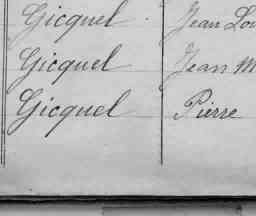 Gicquel Jean Lou
Gicquel Jean M
Gicquel Pierre